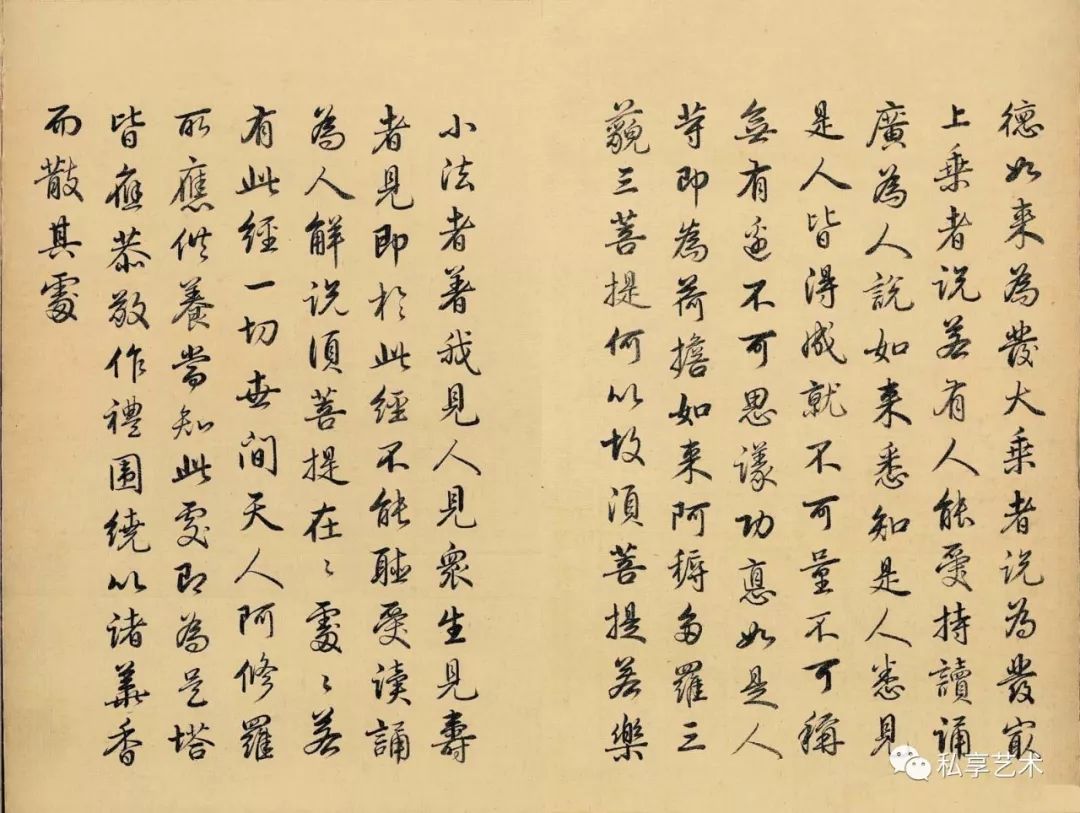 德如来為發大乘者说為發㝡
上乘者说若有人能受持讀诵
廣為人說如来悉知是人悉見
是人皆得成就不可量不可稱
無有邊不可思議功悳如是人
等即為荷擔如来阿耨多羅三
藐三菩提何以故须菩提若樂
小法者著我見人見衆生見壽
者見即於此經不能聽受读誦
為人解说须菩提在〻處〻若
有此經一切世间天人阿修羅
所應供養當知此處即為是塔
皆應恭敬作禮围繞以诸華香
而散其處
私享艺术